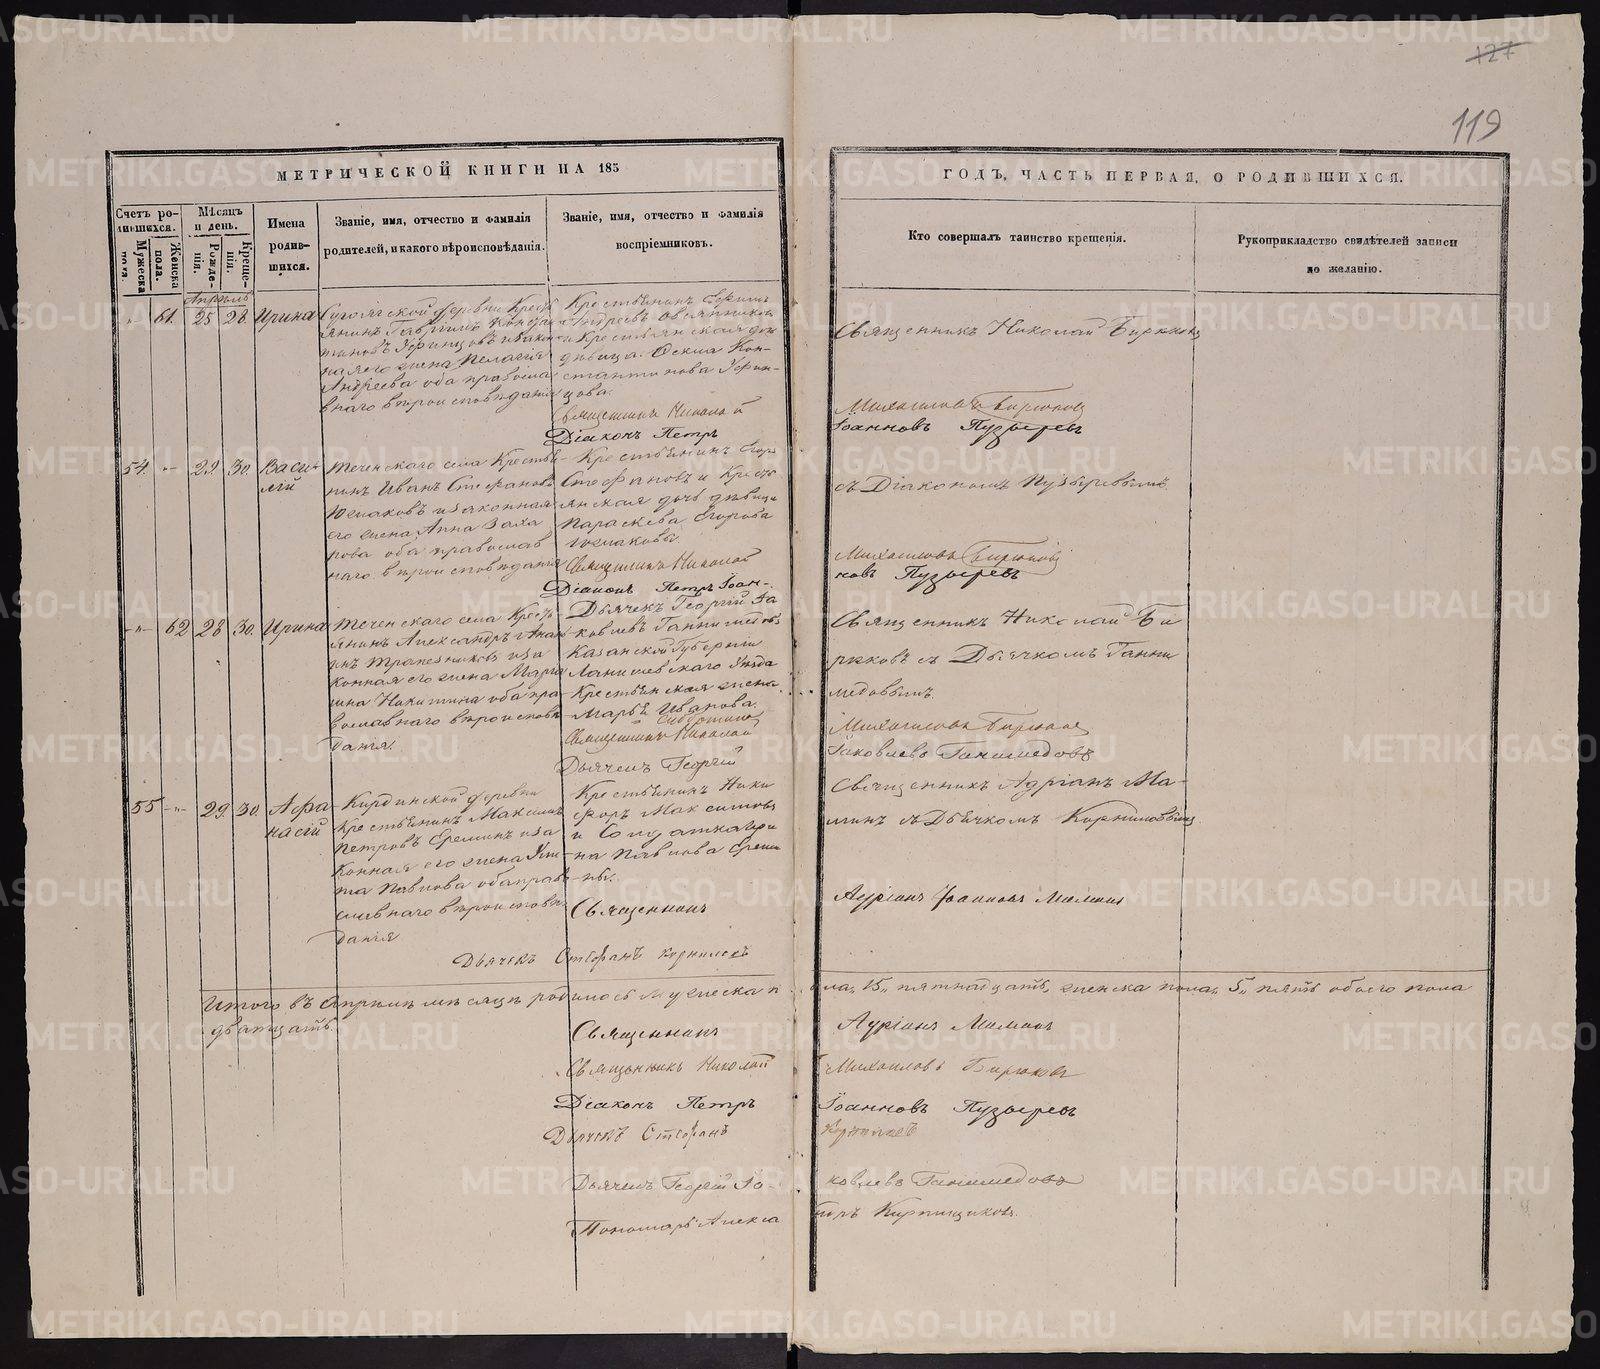 127
119
МЕТРИЧЕСКОЙ КНИГИ НА 185
ГОДЪ, ЧАСТЬ ПЕРВАЯ, О РОДИВШИХСЯ.
Счетъ ро-
дившихся.
Мужеска
пола.
Женска
пола.
Мѣсяцъ
и день.
Рожде-
нія.
Креще-
нія.
Имена
родив-
шихся.
Званіе, имя, отчество и фамилія
родителей, и какого вѣроисповѣданія.
Званіе, имя, отчество и фамилія
воспріемниковъ.
Кто совершалъ таинство крещенія.
Рукоприкладство свидѣтелей записи
по желанію.
Апрѣль
61. 25 28. Ирина
деревни Крестъ
янинъ Гаврило Констан
тиновъ
ная его жена Пелагія
Андреева оба правосла
внаго вѣроисповѣданія
Крестьянинъ Ефимъ
Андреевъ Овсянниковъ
и Крестьянская до
дѣвица Фекла Кон-
стантинова
цова.
Священникъ Николай Бирюковъ
Священникъ Николай Михаиловъ Бирюковъ
Діаконъ Петръ Іоанновъ Пузыревъ
54. 29. 30. Васи-
лій
Теченскаго села Крестья-
нинъ Иванъ Стефановъ
Южаковъ и законная
его жена Анна Заха
рова оба православ
наго вѣроисповѣданія
Крестьянинъ Егор
Стефановъ и Кресть
янская дочь дѣвица
Параскева Егорова
Южаковы.
съ Діакономъ Пузыревымъ
Священникъ Николай Михаиловъ Бирюковъ
Діаконъ Петръ Іоан-
новъ Пузыревъ
62 28 30. Ирина
Теченскаго села Кресть-
янинъ Александръ Ива
нъ Трапезниковъ и за
конная его жена Марі
Никитина оба пра-
вославнаго вѣроисповѣ
данія.
Дьячекъ Георгій Іа
ковлевъ Ганимедовъ
Казанской Губерніи
Лаишевскаго Уѣзда
Крестьянская жена
Марья Иванова
Священникъ Николай Би
рюковъ съ Дьячкомъ Ганни
медовымъ
Священникъ Николай Михаиловъ Бирюковъ
Дьячекъ Георгій Іаковлевъ Ганимедовъ
55 29. 30. Афа
насій
Кирдинской деревни
Крестьянинъ Максимъ
Петровъ Ереминъ и за
конная его жена Ули
та Павлова оба право
славнаго вѣроисповѣ
данія
Крестьянинъ Ники
форъ Максимовъ
и Солдатка Ири
на Павлова Ереми
ны.
Священникъ Адріанъ Ма-
минъ съ Дьячкомъ Корниловымъ
Священникъ Адріанъ Іоанновъ Маминъ
Дьячекъ Стефанъ Корниловъ
Итого въ Апрѣлѣ мѣсяцѣ родилось мужеска пола, 15, пятнадцать, женска пола, 5, пять обоего пола
двадцать.
Священникъ Адріанъ Маминъ
Священникъ Николай Михаиловъ Бирюковъ
Діаконъ Петръ Іоанновъ Пузыревъ
Дьячекъ Стефанъ Корниловъ
Дьячекъ Георгій Іаковлевъ Ганимедовъ
Пономарь Алекса
Кирпищиковъ.
METRIKI.GASO-URAL.RU